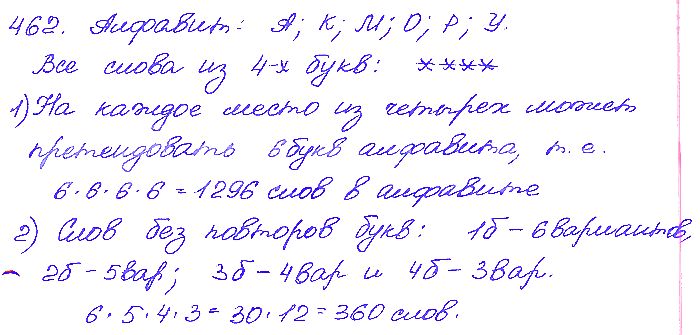 462. Алфавит: А; К; М; О; Р; У.
Все слова из 4-х букв: ××××
1) На каждое место из четырех может
претендовать 6 букв алфавита, т.е.
6·6·6·6 = 1296 слов в алфавите
2) Слов без повторов букв: 1б – 6 вариантов,
– 2б – 5 вар; 3б – 4 вар и 4б – 3 вар.
6·5·4·3 = 30·12 = 360 слов.